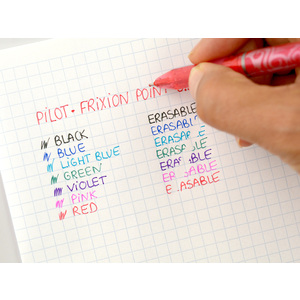 PILOT • FRIXION POINT
BLACK ERASABLE
BLUE ERASABLE
LIGHT BLUE ERASABLE
GREEN ERASABLE
VIOLET ERASABLE
PINK ERASABLE
RED ERASABLE